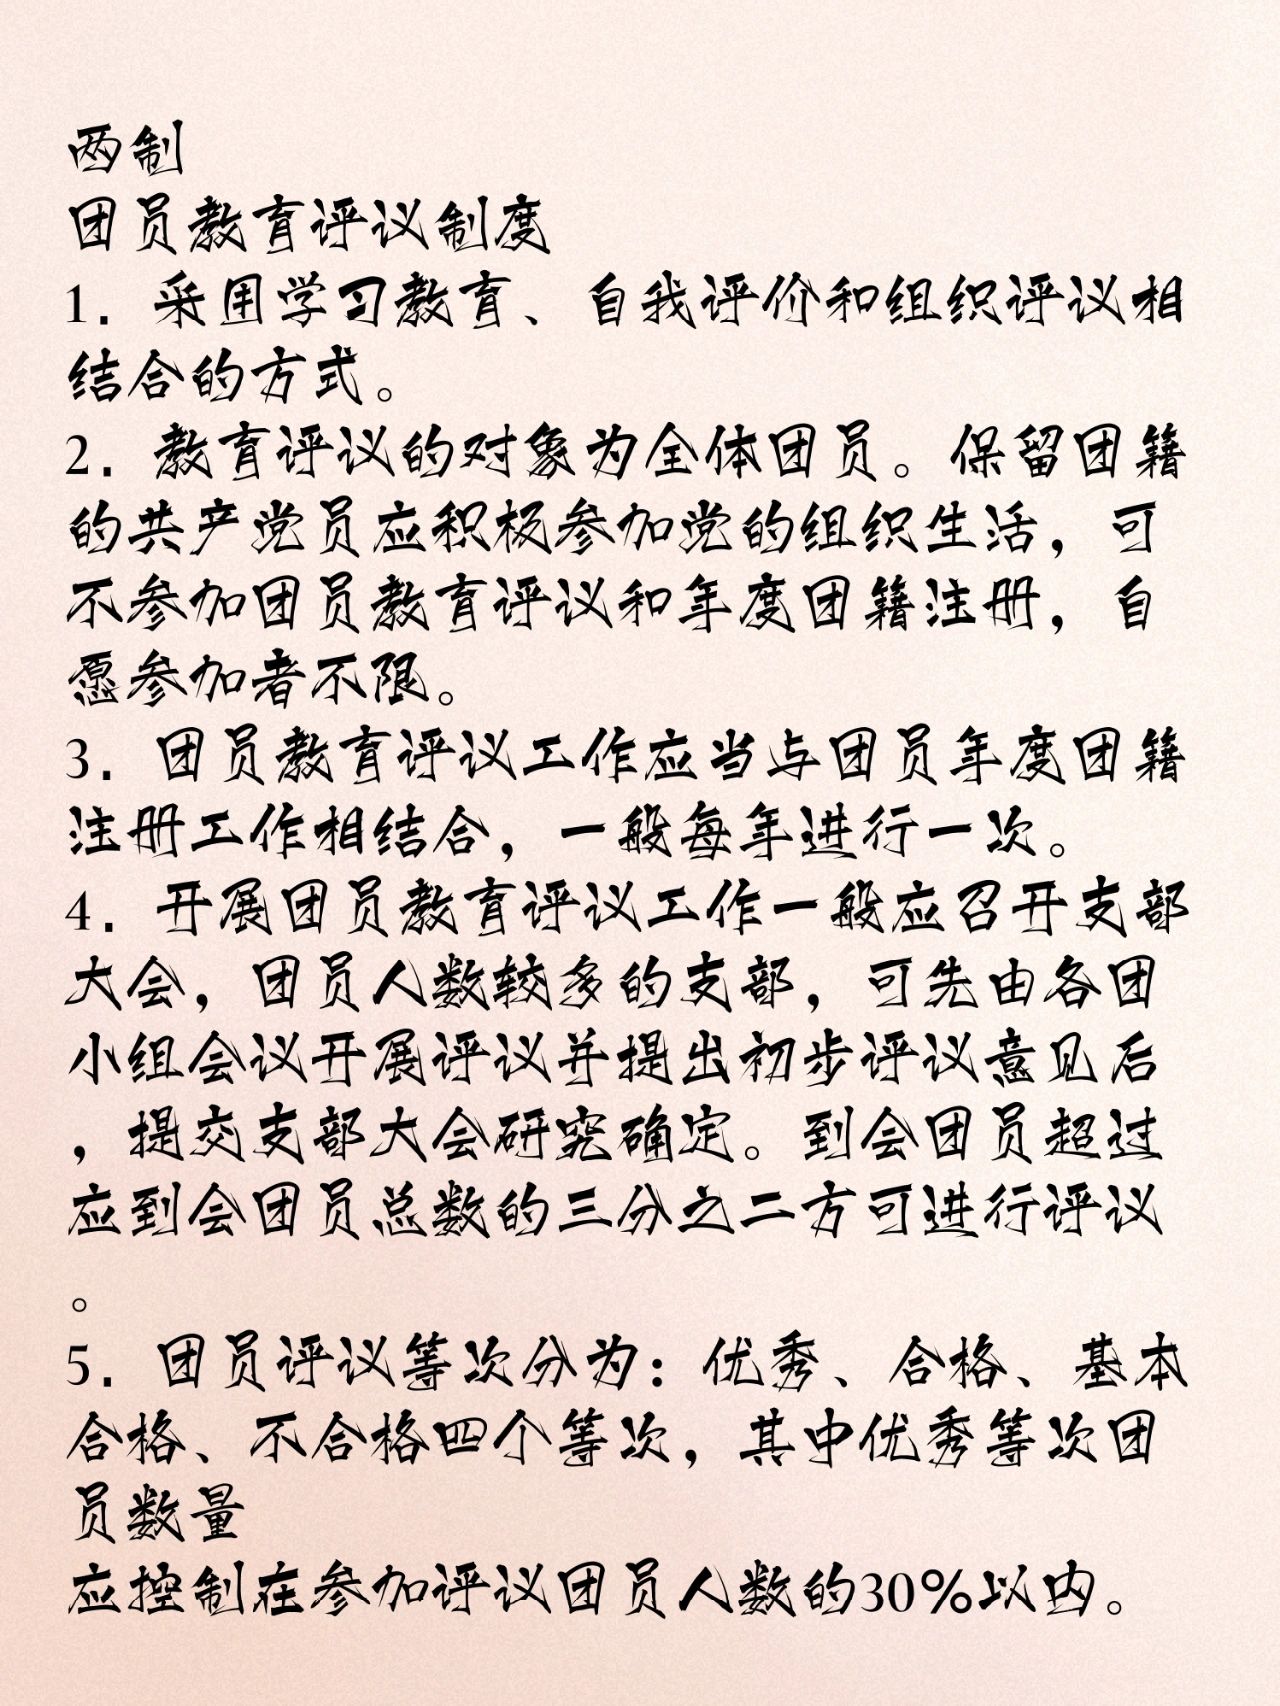 两制
团员教育评议制度
1. 采用学习教育、自我评价和组织评议相
结合的方式。
2. 教育评议的对象为全体团员。保留团籍
的共产党员应积极参加党的组织生活，可
不参加团员教育评议和年度团籍注册，自
愿参加者不限。
3. 团员教育评议工作应当与团员年度团籍
注册工作相结合，一般每年进行一次。
4. 开展团员教育评议工作一般应召开支部
大会，团员人数较多的支部，可先由各团
小组会议开展评议并提出初步评议意见后
，提交支部大会研究确定。到会团员超过
应到会团员总数的三分之二方可进行评议
。
5. 团员评议等次分为：优秀、合格、基本
合格、不合格四个等次，其中优秀等次团
员数量
应控制在参加评议团员人数的30%以内。